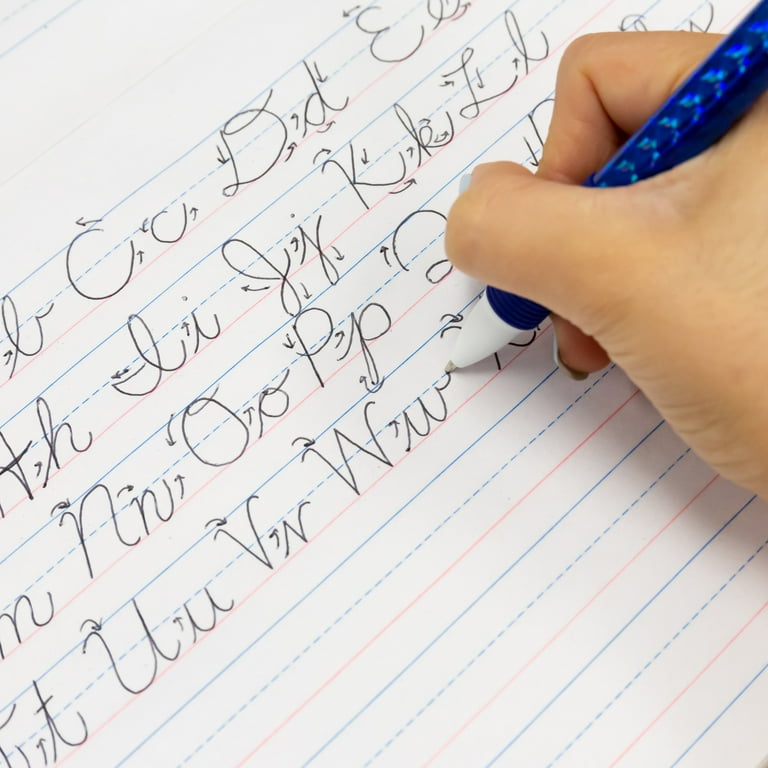 b Cc Dd Ee
Hh Ii Jj Kk Ll
m Nn Oo Pp
Tt Uu Vv Ww